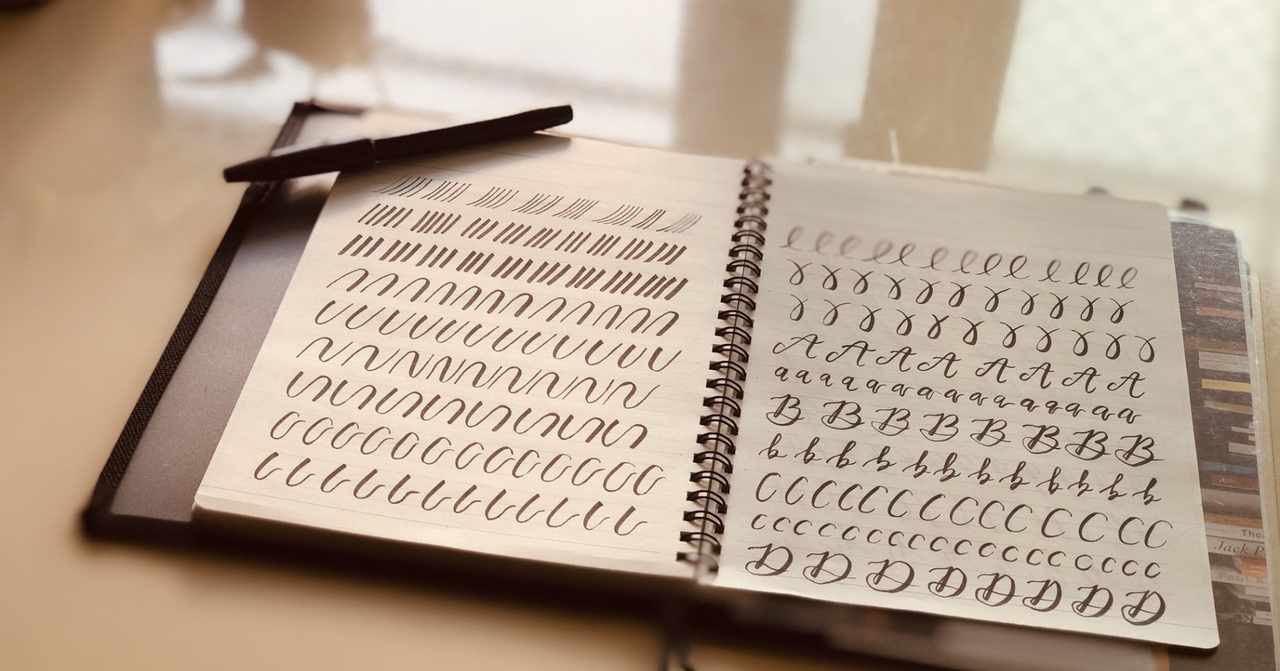 A A A A A A A A
a a a a a a a a a a a a a a a
B B B B B B B B
b b b b b b b b b b b b
C C C C C C C C C C C C C C
c c c c c c c c c c c c c c c c c
D D D D D D D D
Jack